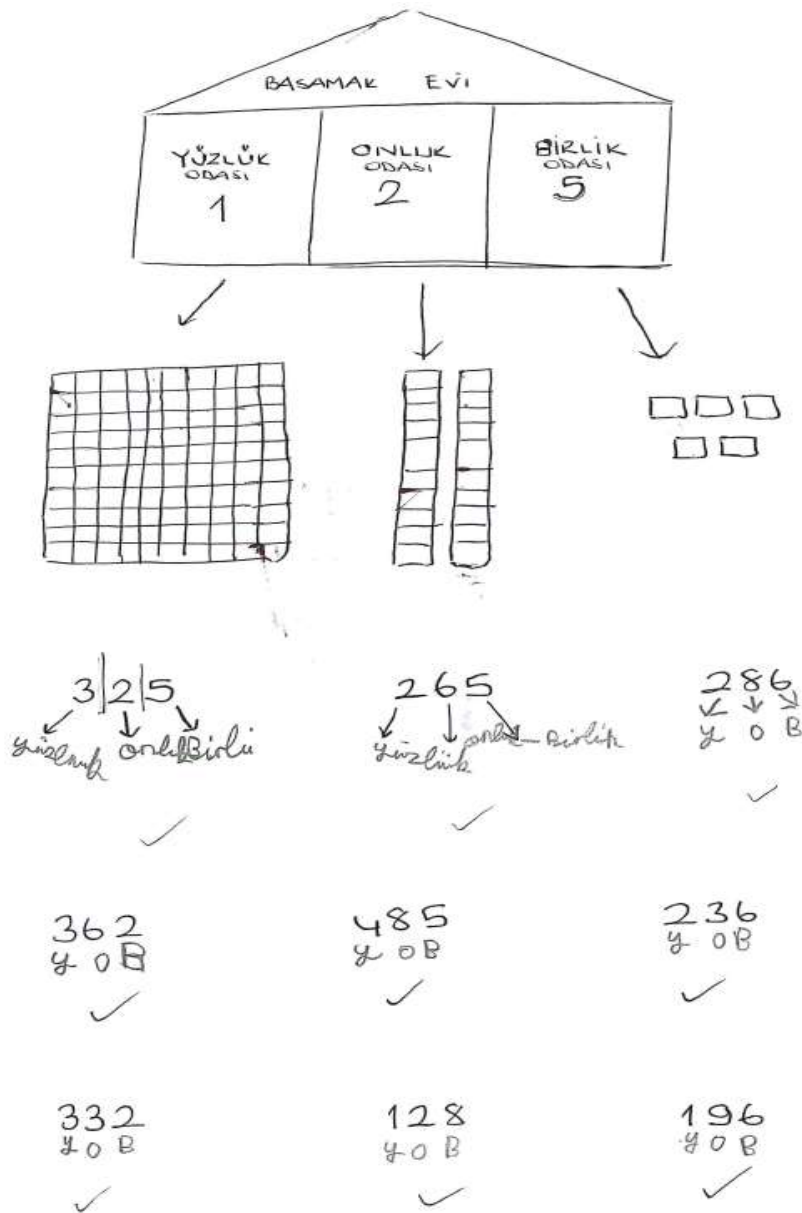 BASAMAK EVİ
YÜZLÜK ODASI 1
ONLUK ODASI 2
BİRLİK ODASI 5
325
yüzlük onlik Birli
265
yüzlük onlu Birlik
286
y O B
362
y O B
485
y O B
236
y O B
332
y O B
128
y O B
196
y O B